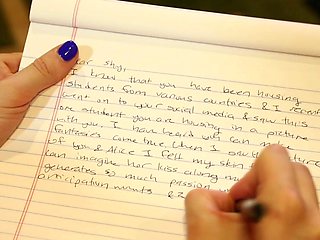 ear Shy,
I know that you have been housing
students from various countries & I recent
went on to your social media & saw this
one student you are housing in a picture
with you. I have heard why can make
fantasies come true. When I saw the picture
of you & Alice I felt my skin
can imagine her kiss along my
generates so much passion
anticipation mounts &